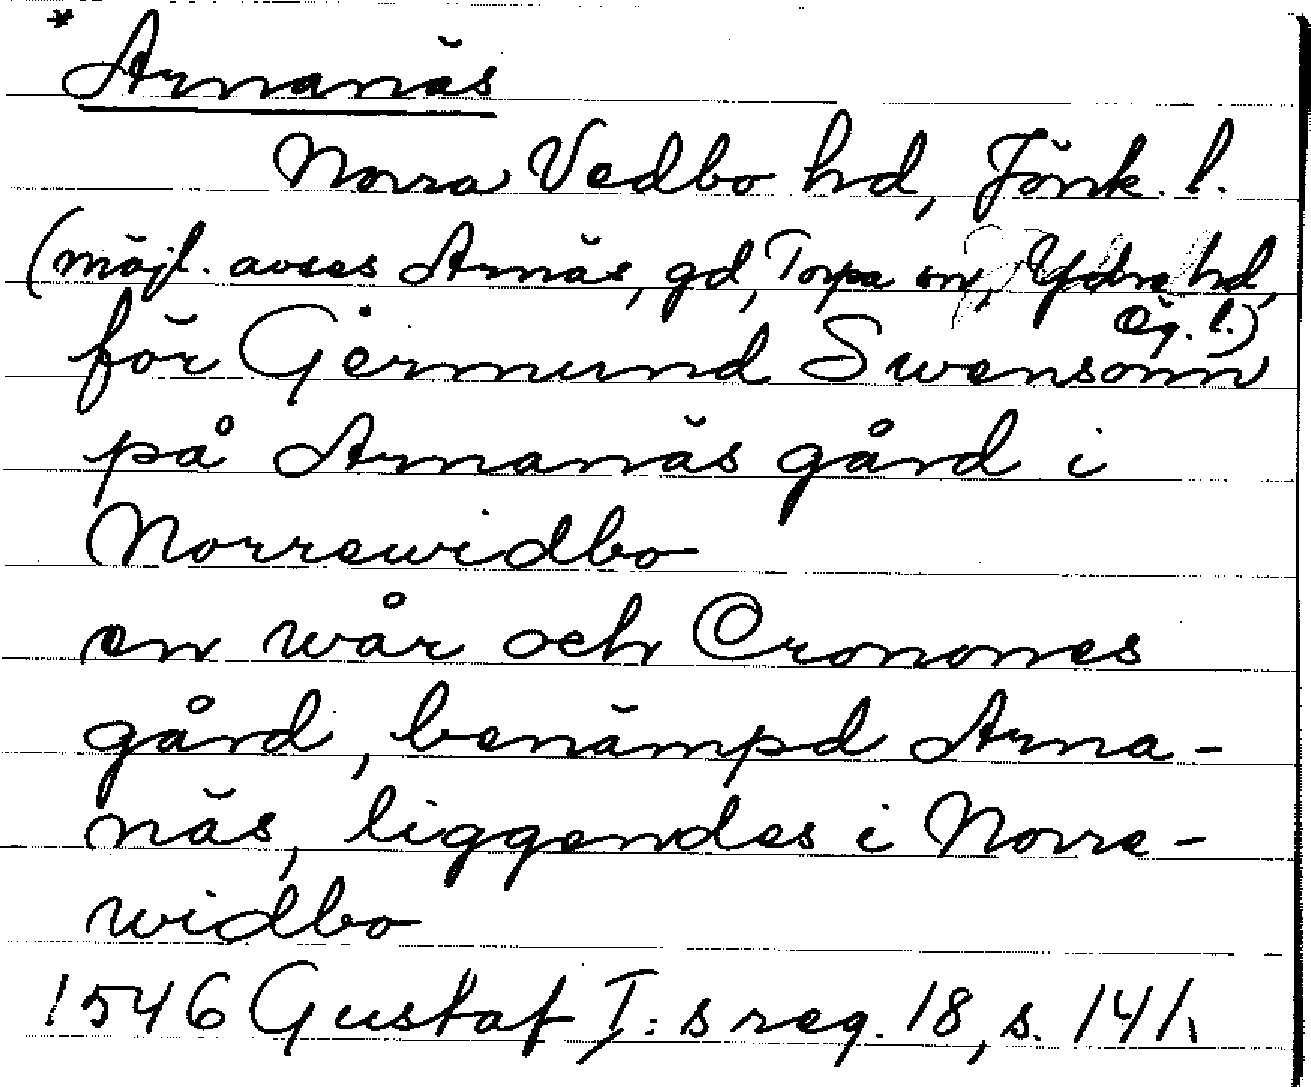 * Arnanäs
Norra Vedbo hd, Jönk. l.
(möjl. avses Arnäs, gd, Torpa sn, Ydre hd,
Ög. l.)
för Germund Swensonn
på Arnanäs gård i
Norrewidbo
en wår och Crononnes
gård, benämpd Arna-
näs, liggendes i Norre-
widbo
1546 Gustaf I:s reg. 18, s. 141.